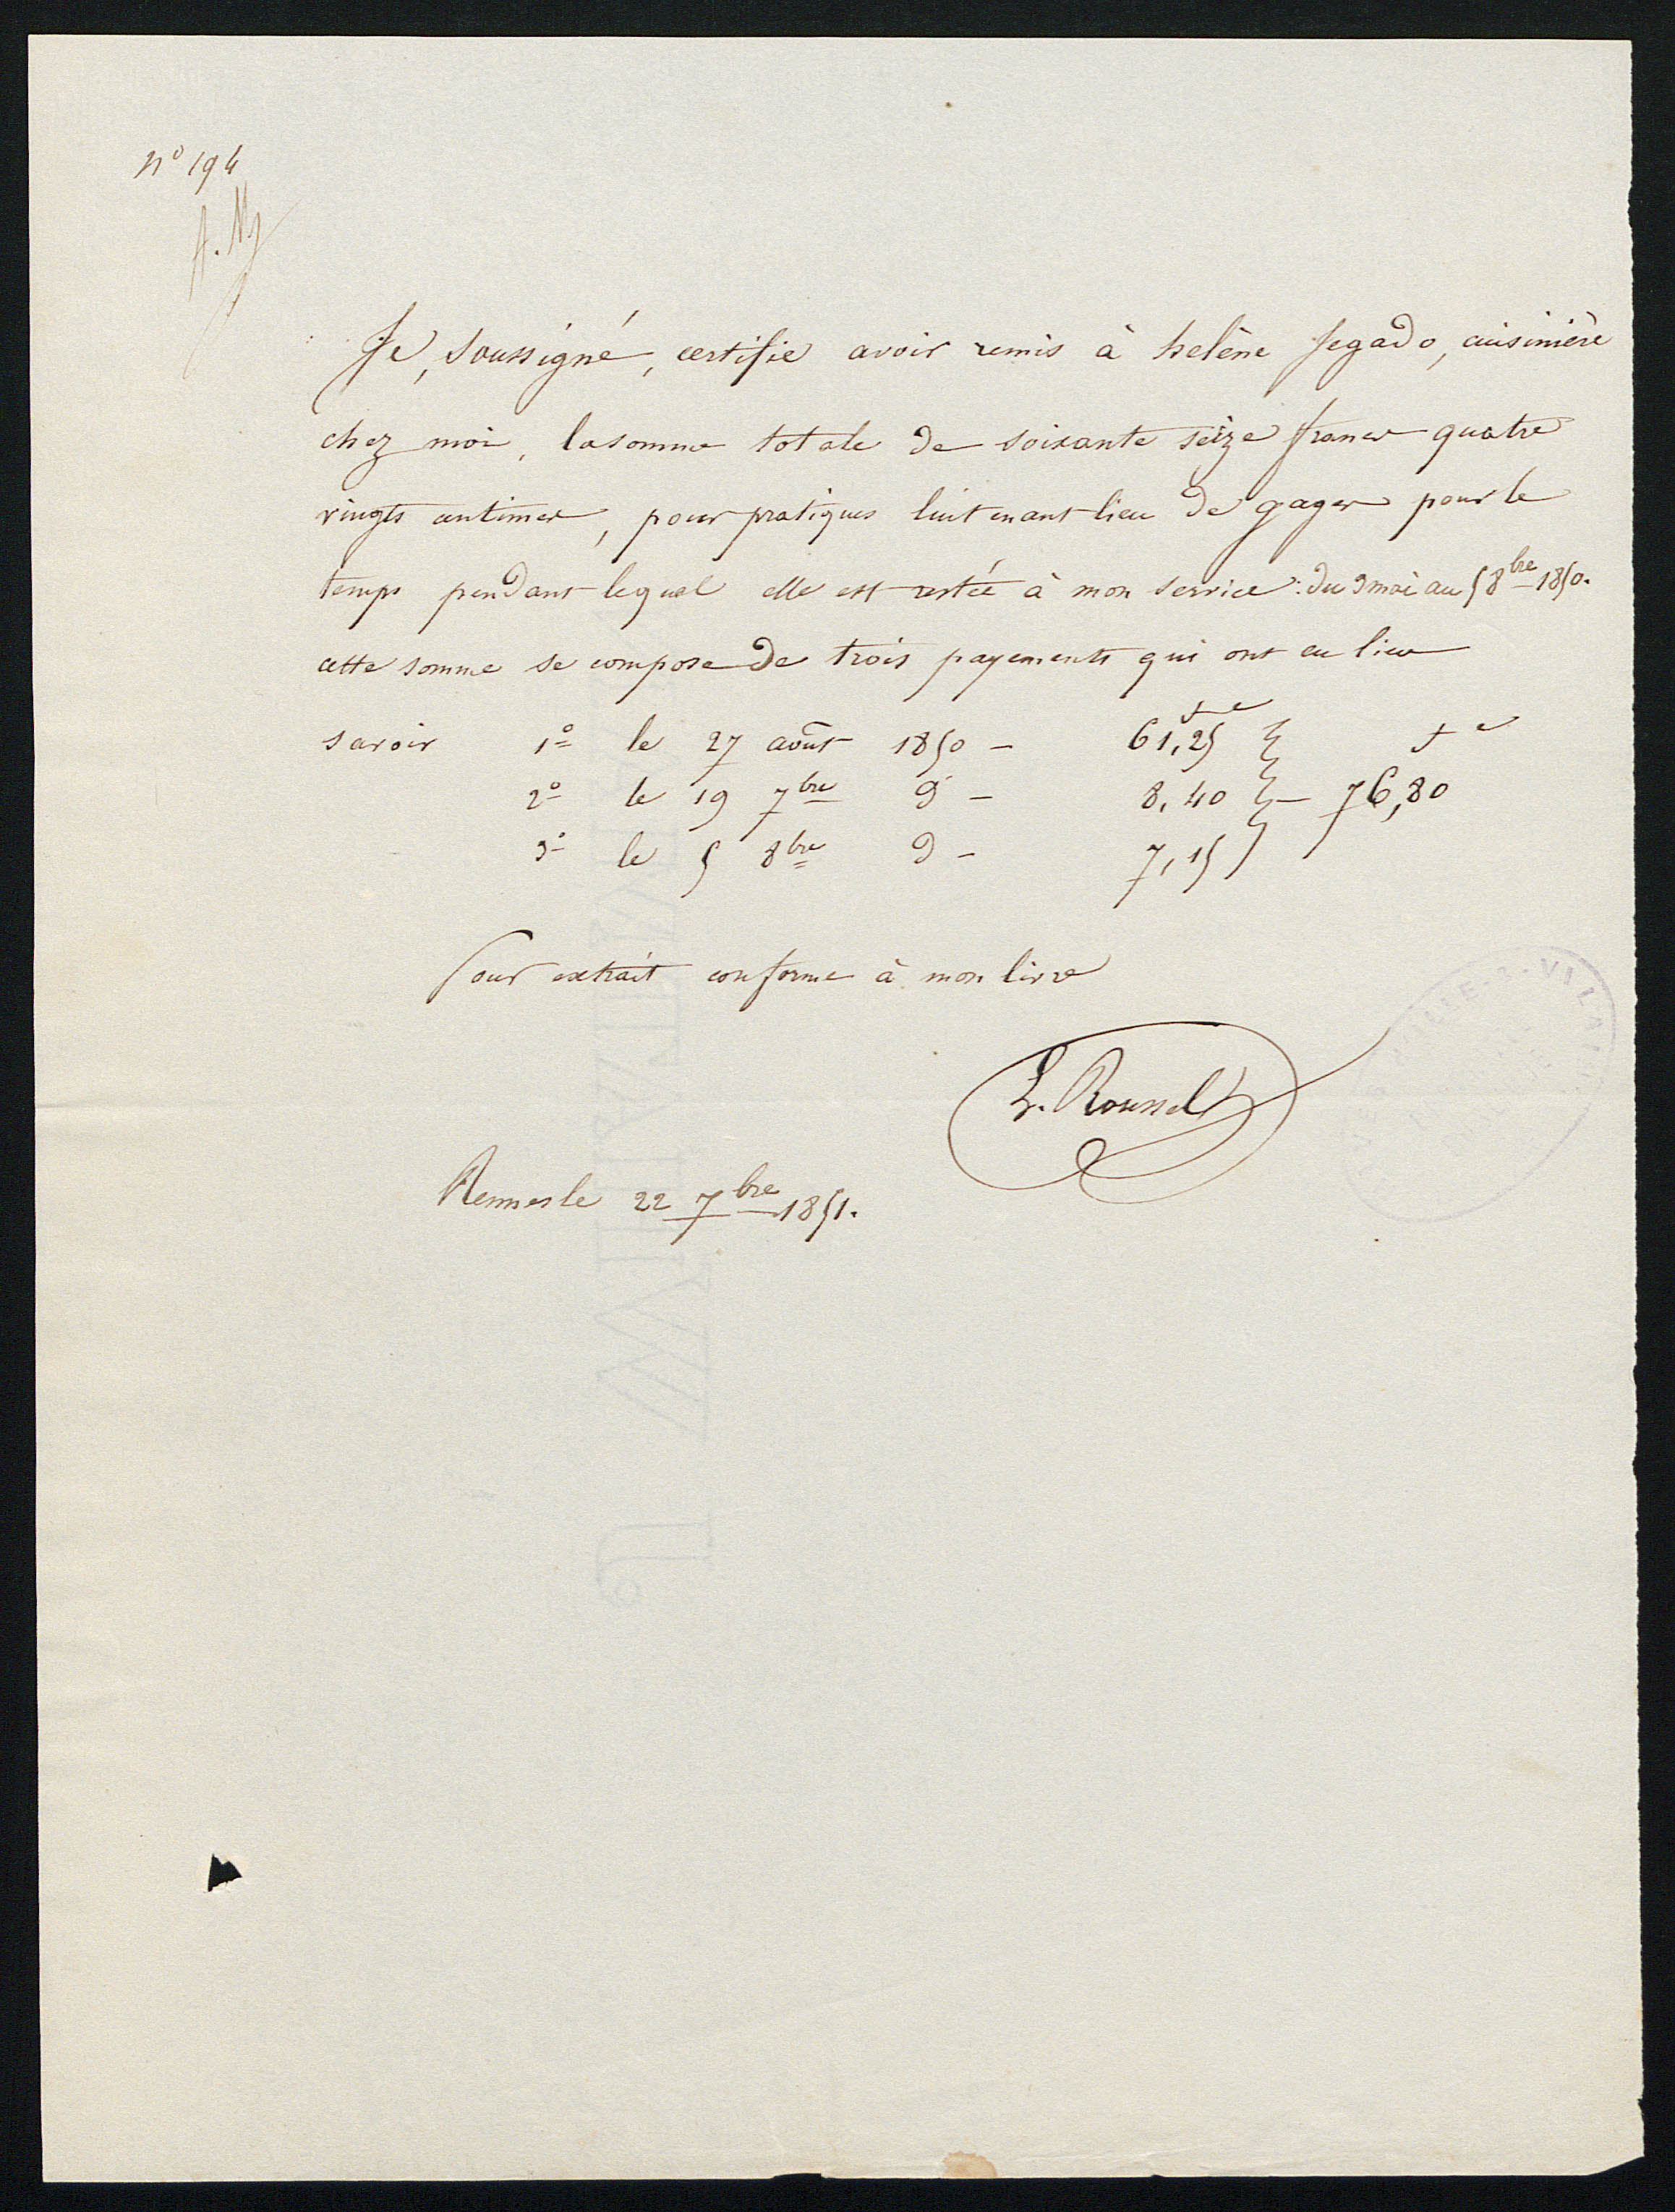 N° 194
Je, soussigné, certifie avoir remis à helène Jegado, cuisinière
chez moi, la somme totale de soixante seize francs quatre
vingts centimes, pour pratiques lui tenant lieu de gages pour le
temps pendant lequel elle est restée à mon service : du 9 mai au 5 8bre 1850.
cette somme se compose de trois payements qui ont eu lieu
savoir 1° le 27 août 1850 – 61,25 f c
2° le 19 7bre d° – 8,40 – 76,80 f c
3° le 5 8bre d – 7,15
Pour extrait conforme à mon livre
L. Roussel
Rennes le 22 7bre 1851.
ILLE-&-VILAINE